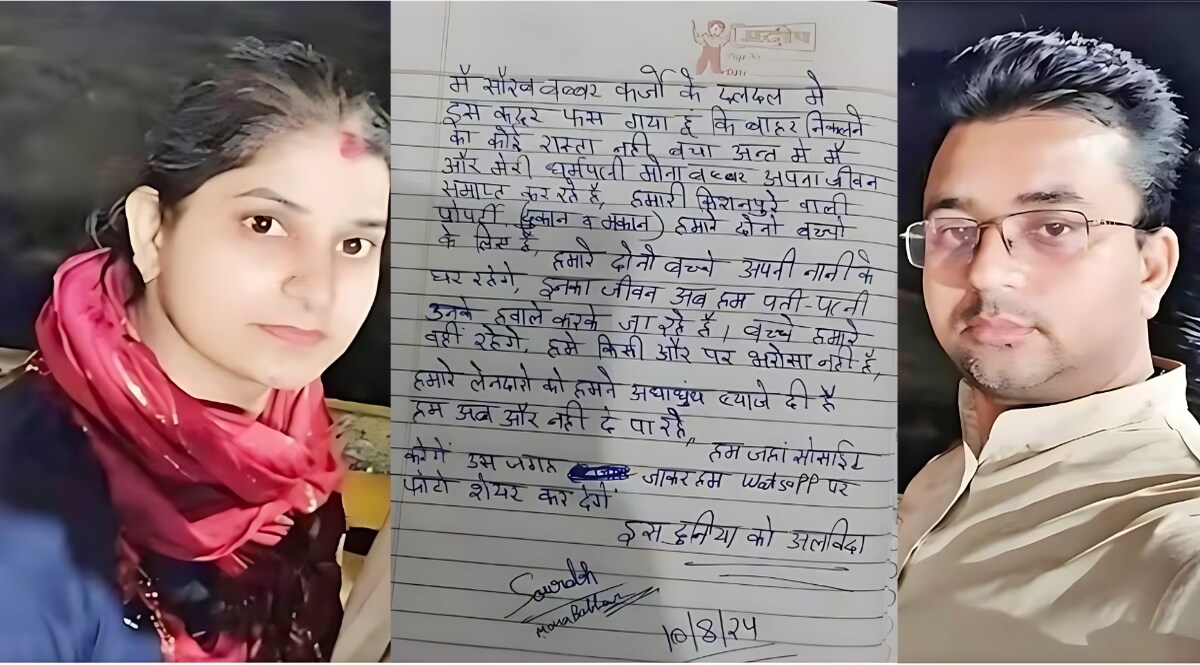 प्रदीप
मैं सौरव बब्बर कर्जो के दलदल मे
इस कदर फस गया हू कि बाहर निकलने
का कोई रास्ता नही बचा अन्त मे मैं
और मेरी धर्मपत्नी मोना बब्बर अपना जीवन
समाप्त कर रहे है, हमारी किशनपुरे वाली
प्रोपर्टी (दुकान व मकान) हमारे दोनो बच्चो
के लिए है, हमारे दोनो बच्चे अपनी नानी के
घर रहेगे, इनका जीवन अब हम पती-पत्नी
उनके हवाले करके जा रहे है। बच्चे हमारे
वहीं रहेगे, हमे किसी और पर भरोसा नही है,
हमारे लेनदारो को हमने अंधाधुंध ब्याजे दी है
हम अब और नही दे पा रहे,
हम जहां सोसाईट
करेगें उस जगह जाकर हम Watsapp पर
फोटो शेयर कर देगें
इस दुनिया को अलविदा
Sourabh
Mona Babbar
10/8/24